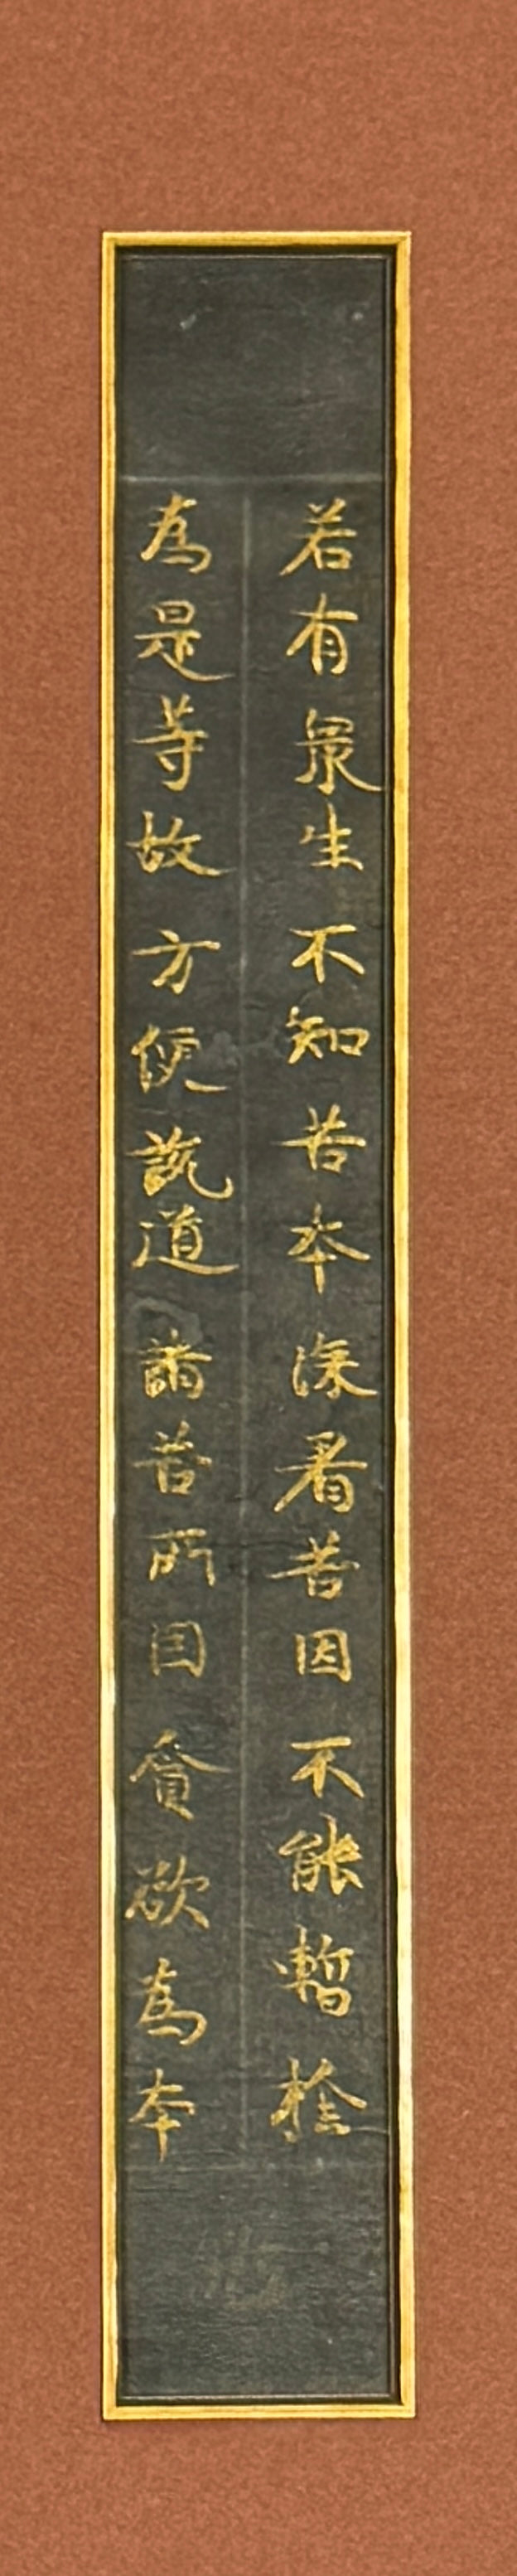 若有衆生不知苦本深着苦因不能暫捨
為是等故方便説道諸苦所因貪欲為本